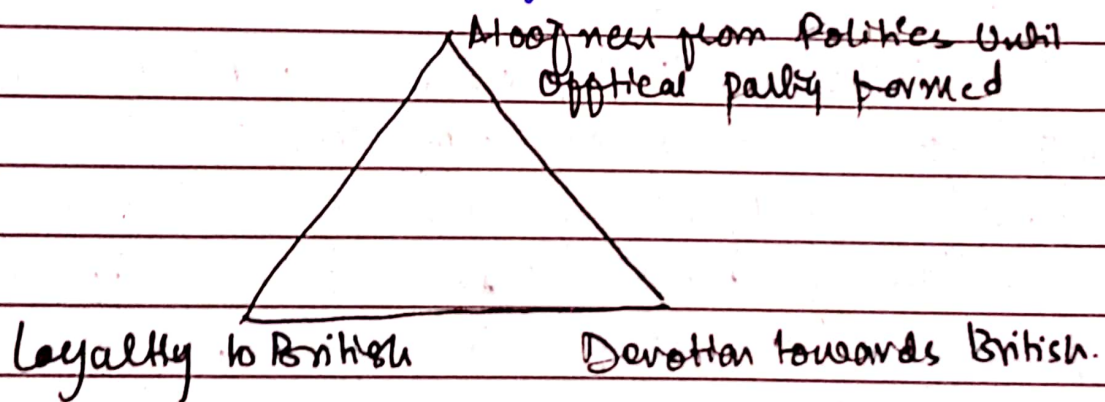 Aloofness from Politics Until
Offtical party formed
Loyaltty to British
Devotion towards British.